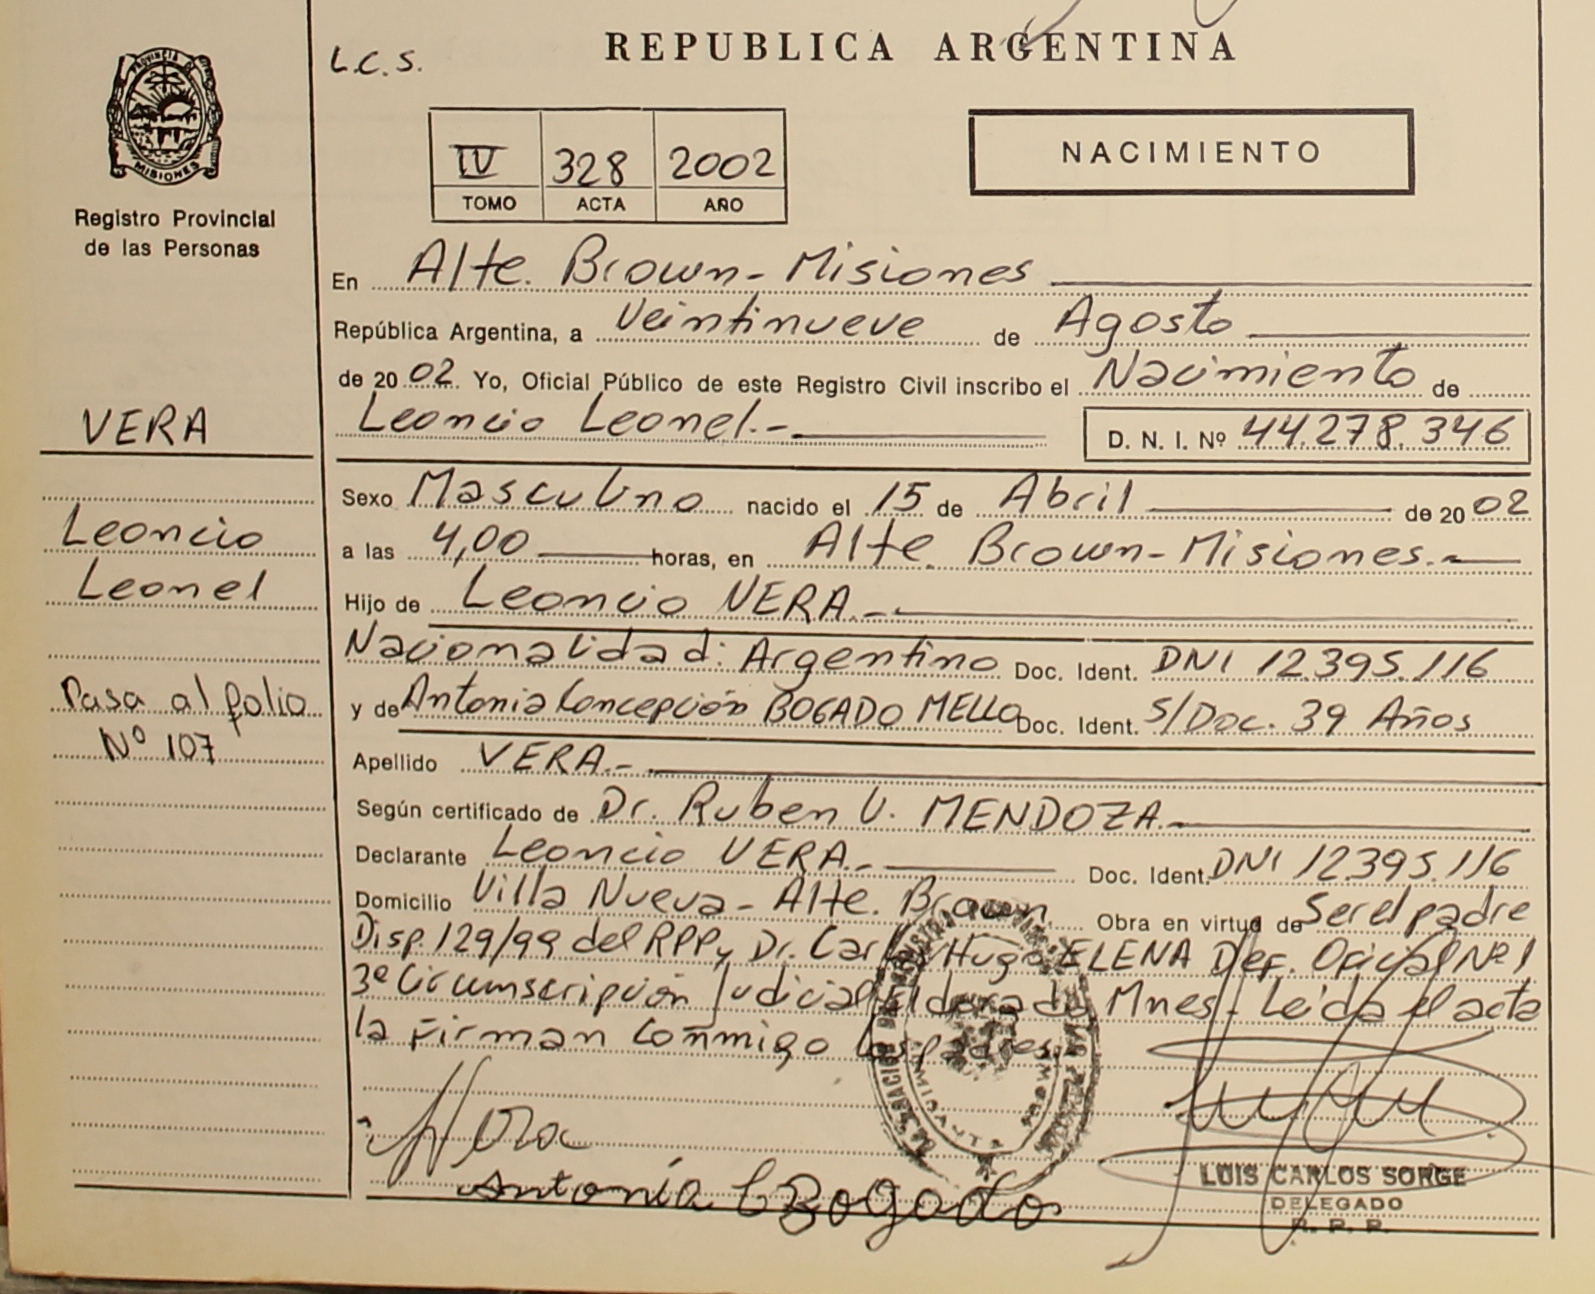 L.C.S.
REPUBLICA ARGENTINA
PROVINCIA DE
MISIONES
Registro Provincial
de las Personas
IV 328 2002
TOMO ACTA AÑO
NACIMIENTO
En Alte. Brown - Misiones
República Argentina, a Veintinueve de Agosto
de 20 02. Yo, Oficial Público de este Registro Civil inscribo el Nacimiento de
Leoncio Leonel.- D. N. I. Nº 44.278.346
VERA
Leoncio
Leonel
Pasa al folio
Nº 107
Sexo Masculino nacido el 15 de Abril de 20 02
a las 4,00 horas, en Alte. Brown - Misiones.-
Hijo de Leoncio VERA.-
Nacionalidad: Argentino Doc. Ident. DNI 12.395.116
y de Antonia Concepción BOGADO MELLO Doc. Ident. S/Doc. 39 Años
Apellido VERA.-
Según certificado de Dr. Ruben U. MENDOZA.-
Declarante Leoncio VERA.- Doc. Ident. DNI 12.395.116
Domicilio Villa Nueva - Alte. Brown Obra en virtud de Ser el padre
Disp. 129/99 del RPP y Dr. Carlos Hugo ELENA Def. Oficial Nº 1
3ª Circunscripción Judicial Eldorado Mnes - Leida el acta
la Firman Conmigo los padres.
Vera
Antonia C Bogado
LUIS CARLOS SORGE
DELEGADO
R. P. P.